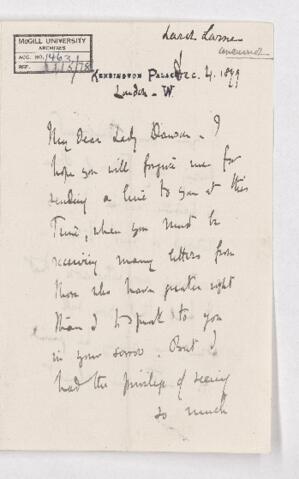 Lord Lorne
answered
McGILL UNIVERSITY
ARCHIVES
ACC. NO. 1463/
REF.
KENSINGTON PALACE Dec. 4. 1899
London - W.
My Dear Lady Dawson - I
hope you will forgive me for
sending a line to you at this
Time, when you must be
receiving many letters from
those who have greater right
than I to speak to you
in your sorrow. But I
had the privilege of seeing
so much